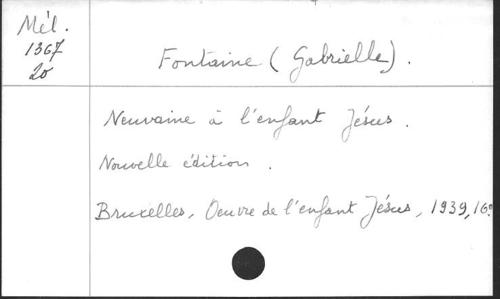 Mél.
1367
20
Fontaine (Gabrielle).
Neuvaine à l'enfant Jésus.
Nouvelle édition.
Bruxelles, Oeuvre de l'enfant Jésus, 1939, 16°